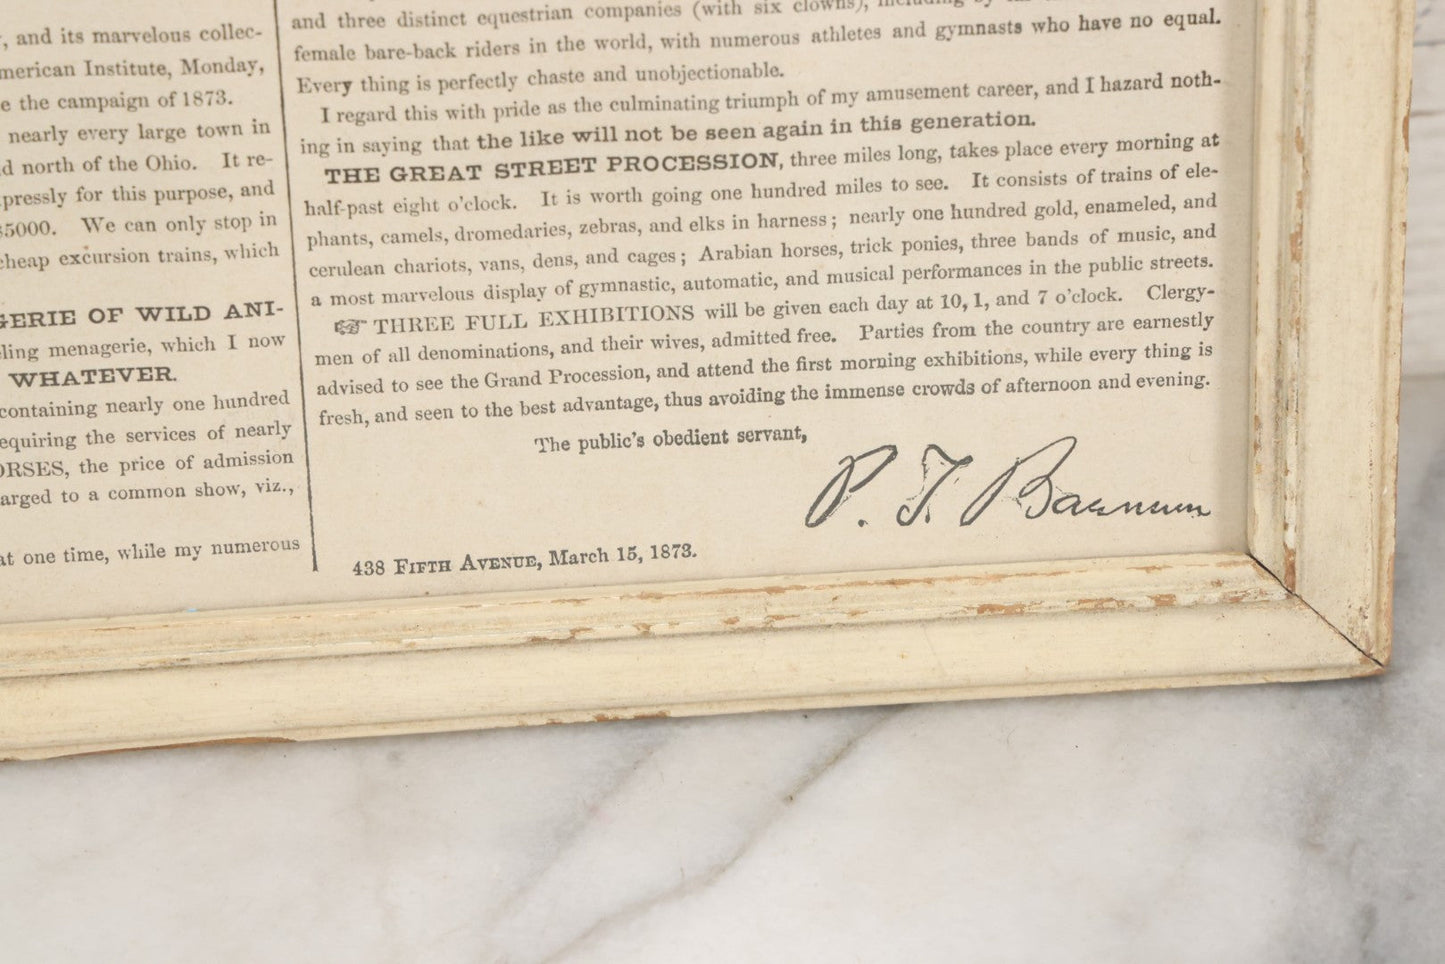 , and its marvelous collec-
merican Institute, Monday,
e the campaign of 1873.
nearly every large town in
d north of the Ohio. It re-
pressly for this purpose, and
$5000. We can only stop in
cheap excursion trains, which
GERIE OF WILD ANI-
ling menagerie, which I now
WHATEVER.
containing nearly one hundred
equiring the services of nearly
ORSES, the price of admission
arged to a common show, viz.,
at one time, while my numerous
and three distinct equestrian companies (with six clowns), including by
female bare-back riders in the world, with numerous athletes and gymnasts who have no equal.
Every thing is perfectly chaste and unobjectionable.
I regard this with pride as the culminating triumph of my amusement career, and I hazard noth-
ing in saying that the like will not be seen again in this generation.
THE GREAT STREET PROCESSION, three miles long, takes place every morning at
half-past eight o'clock. It is worth going one hundred miles to see. It consists of trains of ele-
phants, camels, dromedaries, zebras, and elks in harness; nearly one hundred gold, enameled, and
cerulean chariots, vans, dens, and cages; Arabian horses, trick ponies, three bands of music, and
a most marvelous display of gymnastic, automatic, and musical performances in the public streets.
☞ THREE FULL EXHIBITIONS will be given each day at 10, 1, and 7 o'clock. Clergy-
men of all denominations, and their wives, admitted free. Parties from the country are earnestly
advised to see the Grand Procession, and attend the first morning exhibitions, while every thing is
fresh, and seen to the best advantage, thus avoiding the immense crowds of afternoon and evening.
The public's obedient servant,
P. T. Barnum
438 FIFTH AVENUE, March 15, 1873.